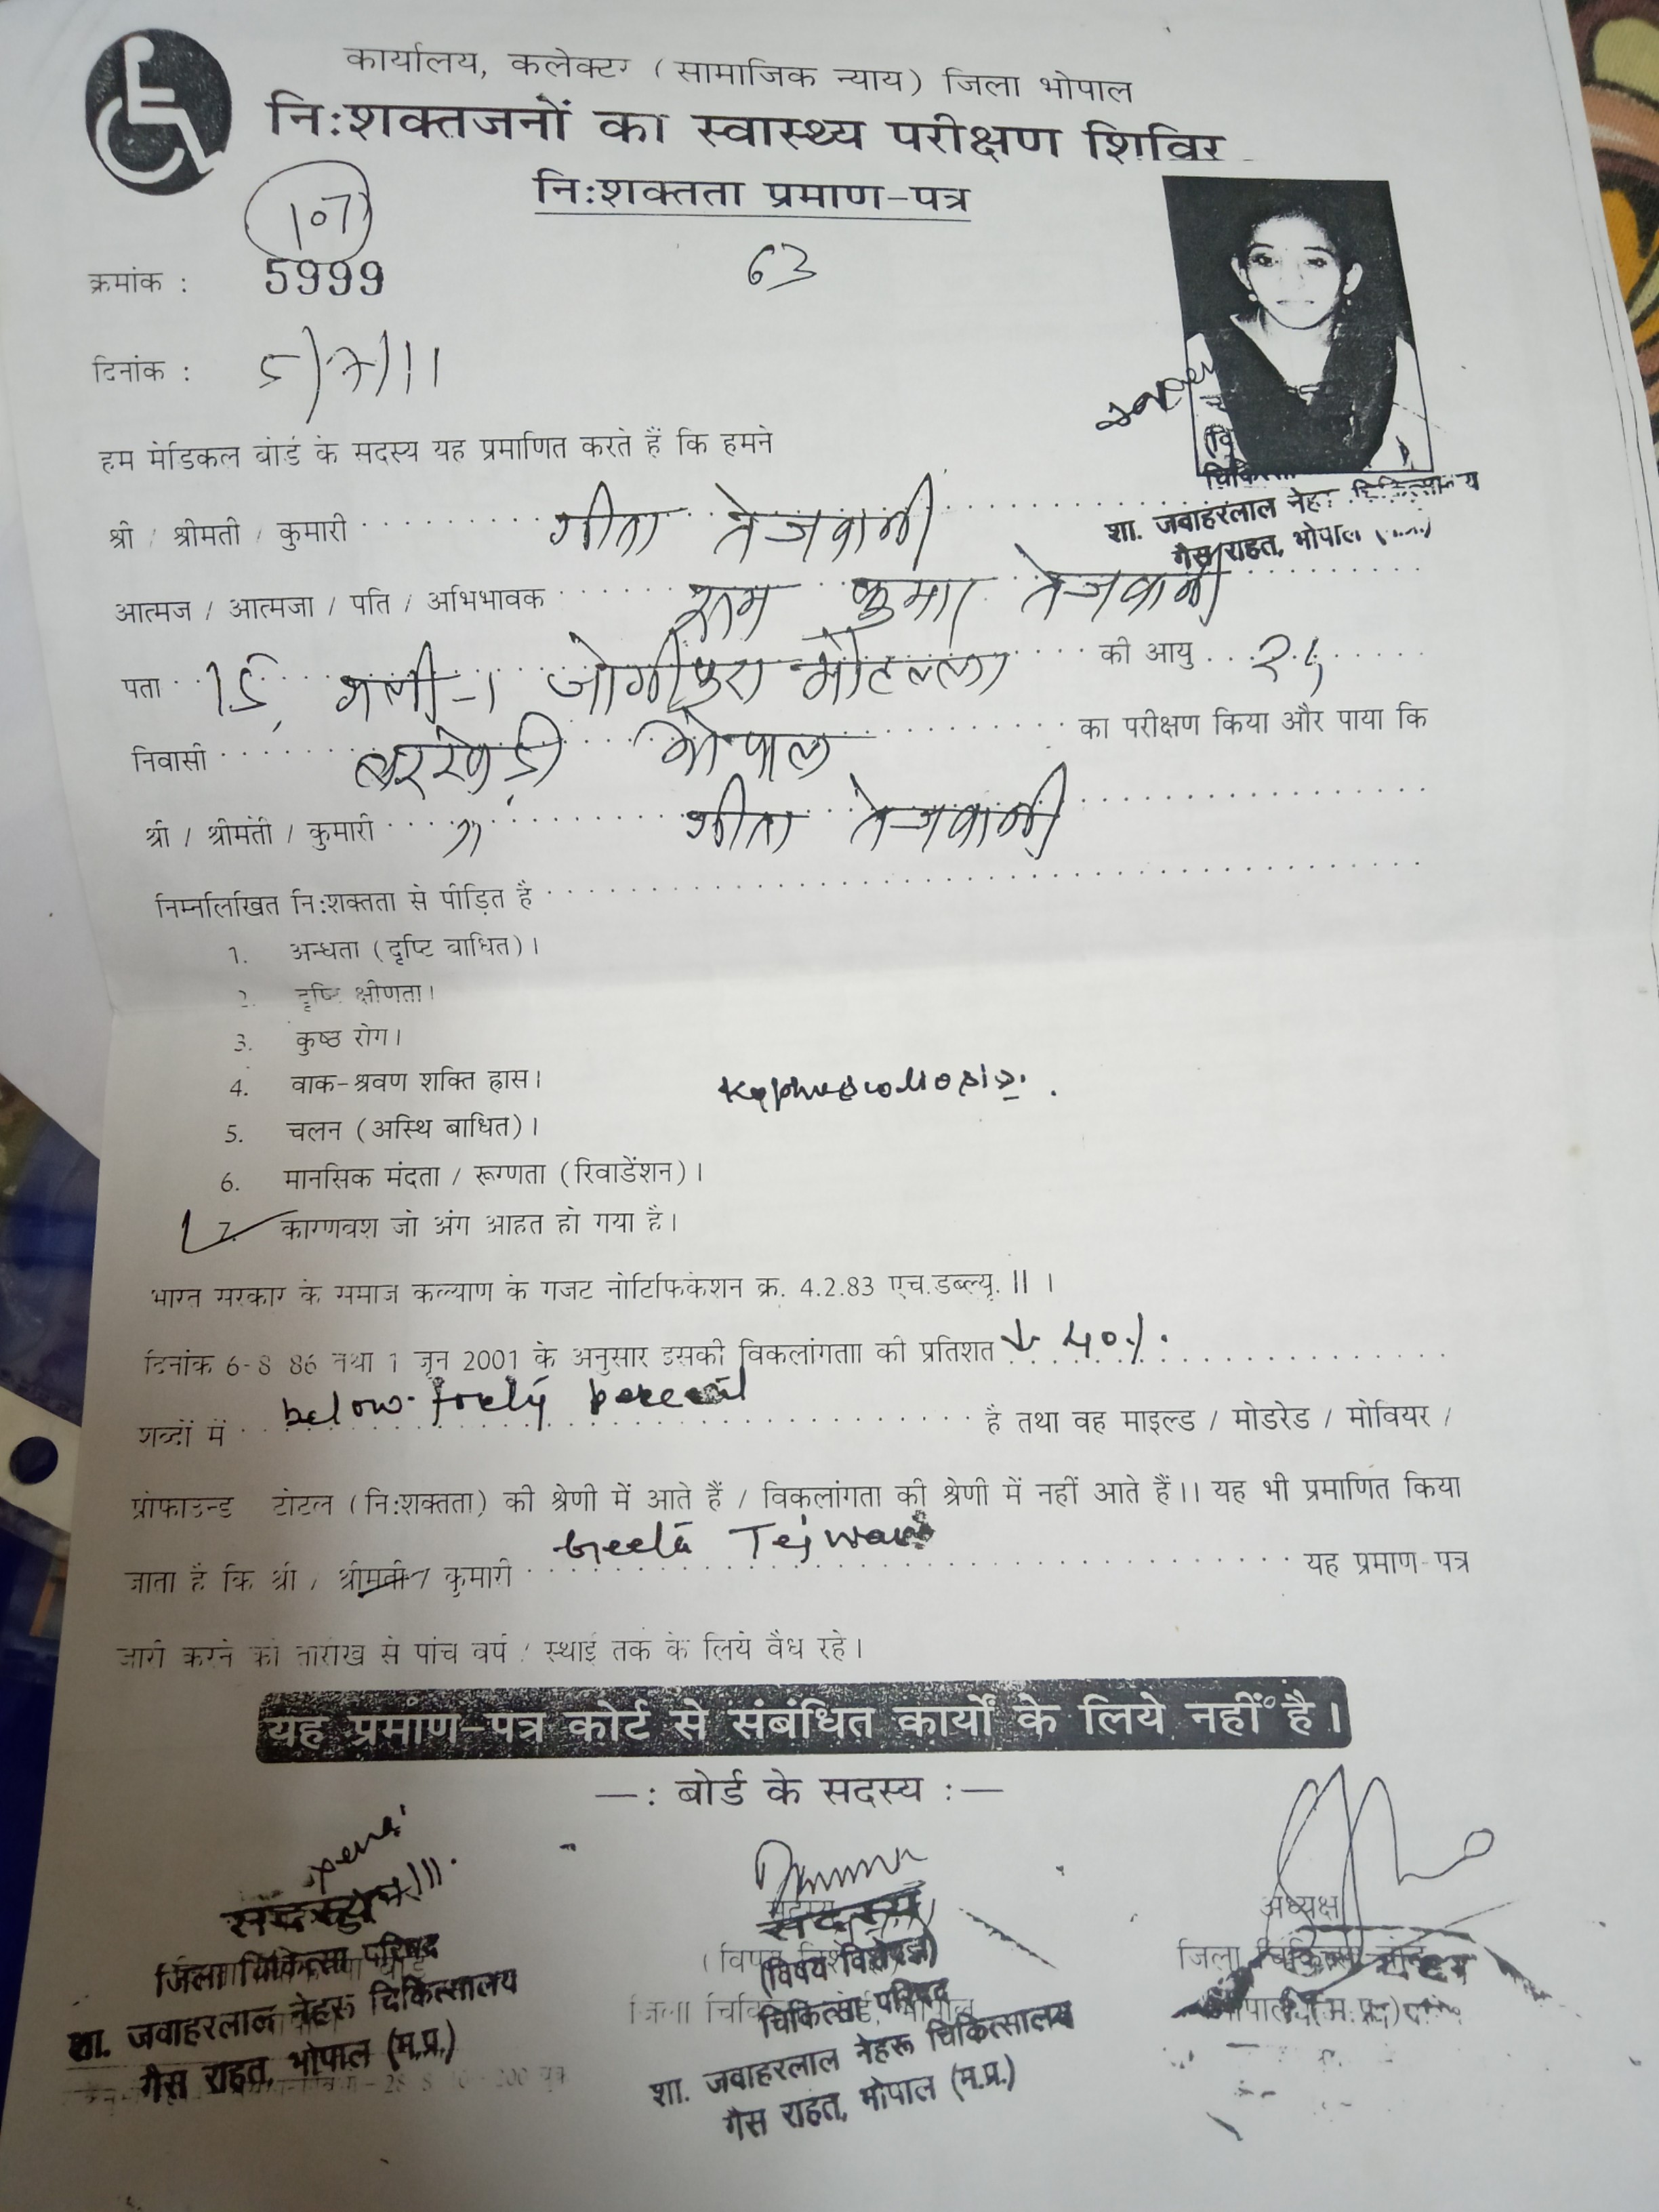 कार्यालय, कलेक्टर (सामाजिक न्याय) जिला भोपाल
नि:शक्तजनों का स्वास्थ्य परीक्षण शिविर
नि:शक्तता प्रमाण-पत्र
107
क्रमांक : 5999
63
दिनांक : 5/7/11
हम मेडिकल बोर्ड के सदस्य यह प्रमाणित करते हैं कि हमने
श्री / श्रीमती / कुमारी गीता तेजवानी
शा. जवाहरलाल नेहरू चिकित्सालय
गैस राहत, भोपाल
आत्मज / आत्मजा / पति / अभिभावक राम कुमार तेजवानी
पता 15, गली-1 जोगीपुरा मोहल्ला की आयु
निवासी बरखेड़ी भोपाल का परीक्षण किया और पाया कि
श्री / श्रीमती / कुमारी " गीता तेजवानी
निम्नलिखित नि:शक्तता से पीड़ित है
1. अन्धता (दृष्टि बाधित)।
2. दृष्टि क्षीणता।
3. कुष्ठ रोग।
4. वाक-श्रवण शक्ति ह्रास।
Kyphoscoliosis.
5. चलन (अस्थि बाधित)।
6. मानसिक मंदता / रूग्णता (रिवाडेंशन)।
7. कारणवश जो अंग आहत हो गया है।
भारत सरकार के समाज कल्याण के गजट नोटिफिकेशन क्र. 4.2.83 एच.डब्ल्यू. II ।
दिनांक 6-8 86 तथा 1 जून 2001 के अनुसार उसकी विकलांगताा की प्रतिशत ↓ 40%.
शब्दों में below forty percent है तथा वह माइल्ड / मोडरेड / मोवियर /
प्रोफाउन्ड टोटल (नि:शक्तता) की श्रेणी में आते हैं / विकलांगता की श्रेणी में नहीं आते हैं।। यह भी प्रमाणित किया
जाता है कि श्री / श्रीमती / कुमारी Geeta Tejwani यह प्रमाण-पत्र
जारी करने की तारीख से पांच वर्ष / स्थाई तक के लिये वैध रहे।
यह प्रमाण-पत्र कोर्ट से संबंधित कार्यों के लिये नहीं है।
—: बोर्ड के सदस्य :—
सदस्य
जिला चिकित्सा परिषद
शा. जवाहरलाल नेहरू चिकित्सालय
गैस राहत, भोपाल (म.प्र.)
सदस्य
(विषय विशेषज्ञ)
चिकित्सा परिषद
शा. जवाहरलाल नेहरू चिकित्सालय
गैस राहत, भोपाल (म.प्र.)
अध्यक्ष
जिला